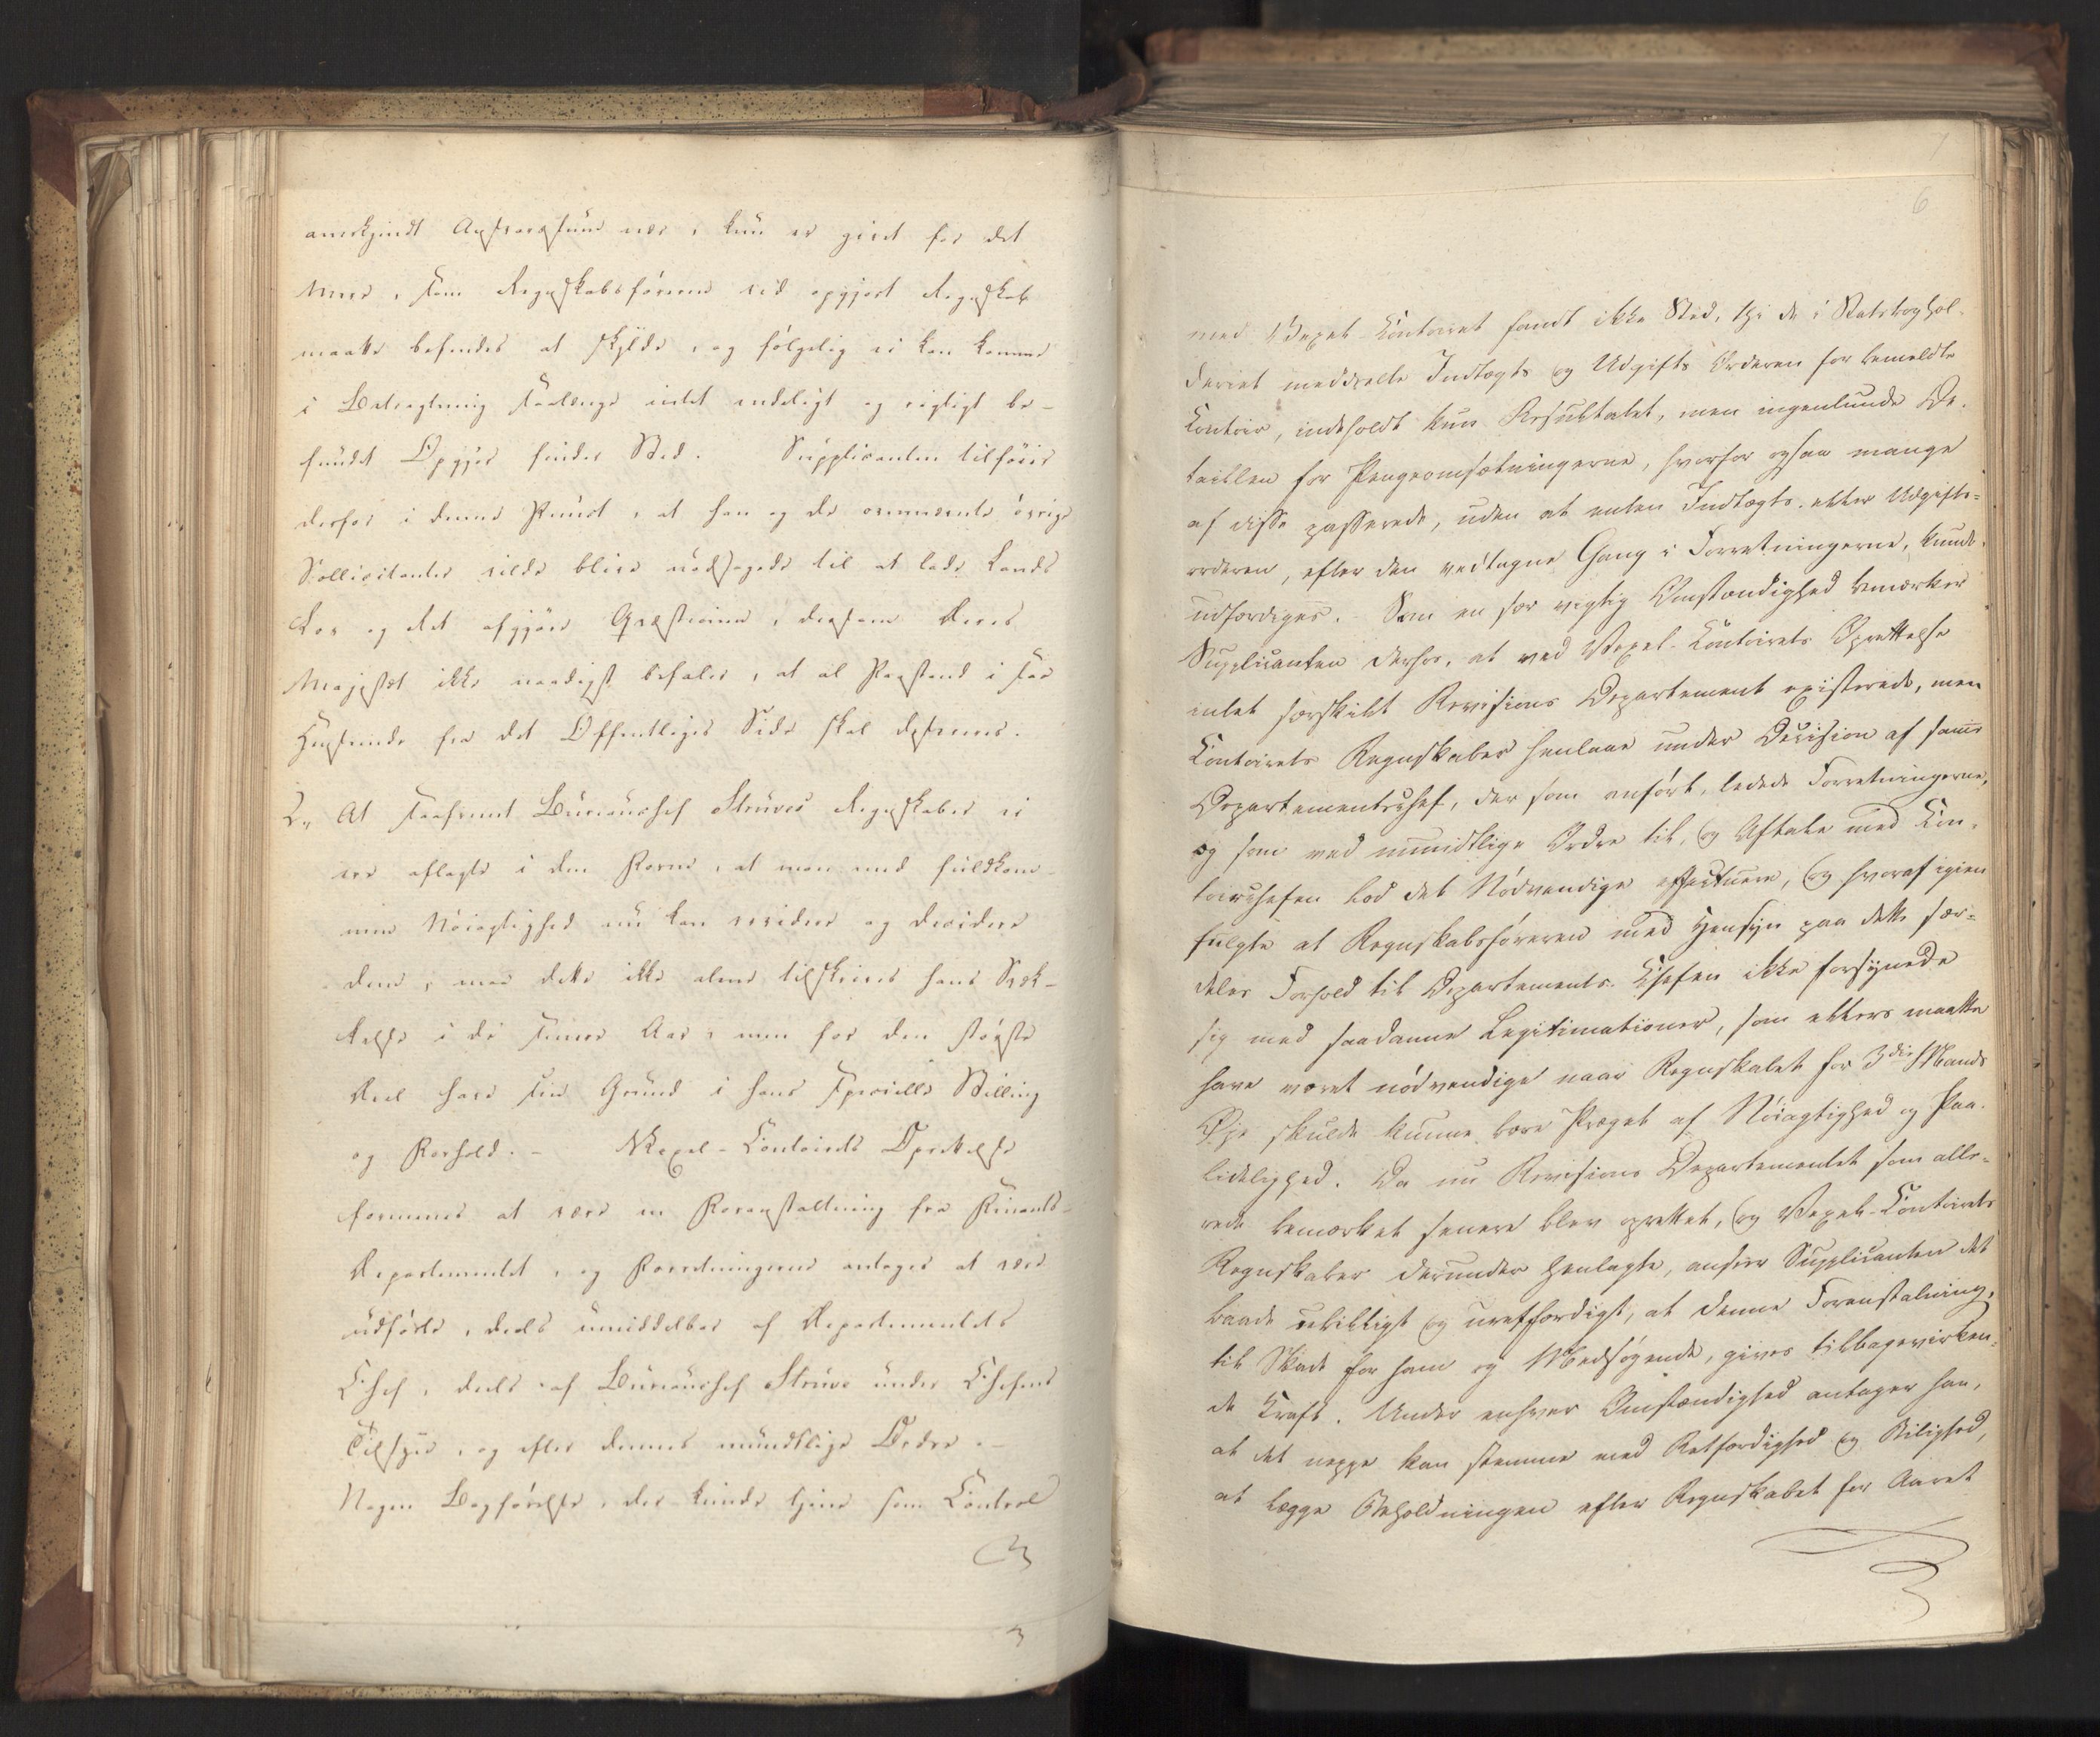 anerkjendt Ansvarssum nær, kun er givet for det
Mere, som Regnskabsføreren ved opgjort Regnskab
maatte befindes at skylde, og følgelig ei kan komme
i Betragtning saalænge intet endeligt og rigtigt be-
fundet Opgjør finder Sted. Supplicanten tilføier
derfor i denne Punct, at han og de ovennævnte øvrige
Sollicitanter vilde blive nødsagede til at lade Lands
Lov og Ret afgjøre Qvæstionen, dersom Deres
Majestæt ikke naadigst befaler, at al Paastand i saa
Henseende fra det Offentliges Side skal desinere.
2, At saasnart Bureauchef Struves Regnskaber ei
ere aflagte i den Form, at man med fuldkom-
men Nøiagtighed nu kan revidere og decidere
dem, maa dette ikke alene tilskrives hans Svæk-
kelse i de senere Aar, men for den største
Deel have sin Grund i hans specielle Stilling
og Forhold. - Vexel-Contoirets Oprettelse
formenes at være en Foranstaltning fra Finants-
Departementet, og Forretningerne antages at være
udførte, deels umiddelbar af Departementets
Chef, deels af Bureauchef Struve under Chefens
Tilsyn, og efter dennes mundtlige Ordre. -
Nogen Bogførelse, der kunde tjene som Control
6
med Vexel-Contoiret fandt ikke Sted, thi de i Statsboghol-
deriet meddeelte Indtægts og Udgifts Ordrer for bemeldte
Contoir, indeholdt kun Resultatet, men ingenlunde De-
taillen for Pengeomsætningerne, hvorfor ogsaa mange
af disse passerede, uden at enten Indtægts- eller Udgifts-
ordren, efter den vedtagne Gang i Forretningerne, kunde
udfærdiges. Som en særvigtig Omstændighed bemærker
Supplicanten derhos, at ved Vexel-Contoirets Oprettelse
intet særskilt Revisions Departement existerede, men
Contoirets Regnskaber henlaae under Decision af samme
Departementschef, der som anført, ledede Forretningerne,
og som ved mundtlige Ordre til, og Aftale med Con-
toirchefen lod det Nødvendige effectuere, og hvoraf igien
fulgte at Regnskabsføreren med Hensyn paa dette sær-
deles Forhold til Departements-Chefen ikke forsynede
sig med saadanne Legitimationer, som ellers maatte
have været nødvendige naar Regnskabet for 3die Mands
Øje skulde kunne bære Præget af Nøiagtighed og Paa-
lidelighed. Da nu Revisions Departementet som alle-
rede bemærket senere blev oprettet, og Vexel-Contoirets
Regnskaber derunder henlagte, anseer Supplicanten det
baade ubilligt og uretfærdigt, at denne Foranstalning,
til Skade for ham og Medsøgende, gives tilbagevirken-
de Kraft. Under enhver Omstændighed antager han,
at det neppe kan stemme med Retfærdighed og Bilighed,
at lægge Beholdningen efter Regnskabet for Aaret